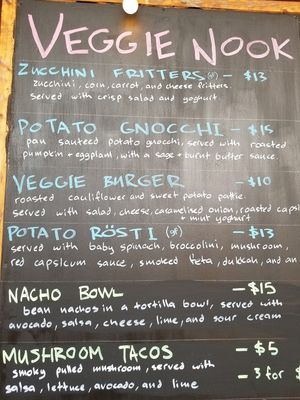 VEGGIE NOOK
ZUCCHINI FRITTERS (gf) - $13
zucchini, corn, carrot, and cheese fritters.
served with crisp salad and yoghurt
POTATO GNOCCHI - $15
pan sauteed potato gnocchi, served with roasted
pumpkin + eggplant, with a sage + burnt butter sauce.
VEGGIE BURGER - $10
roasted cauliflower and sweet potato pattie.
served with salad, cheese, caramelised onion, roasted capsi
+ mint yoghurt
POTATO RÖSTI (gf) - $13
served with baby spinach, broccolini, mushroom,
red capsicum sauce, smoked feta, dukkah, and an
NACHO BOWL - $15
bean nachos in a tortilla bowl, served with
avocado, salsa, cheese, lime, and sour cream
MUSHROOM TACOS - $5
smoky pulled mushroom, served with - 3 for $
salsa, lettuce, avocado, and lime